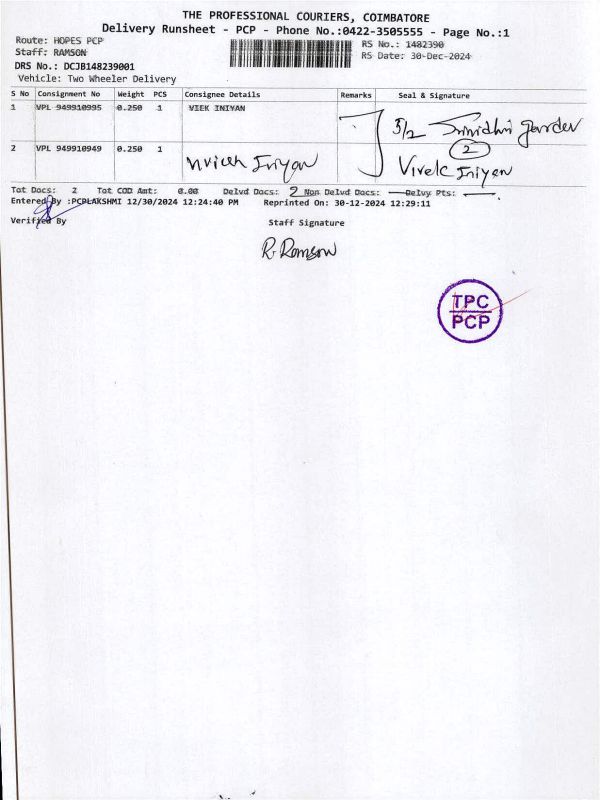 THE PROFESSIONAL COURIERS, COIMBATORE
Delivery Runsheet - PCP - Phone No.:0422-3505555 - Page No.:1
Route: HOPES PCP
RS No.: 1482390
Staff: RAMSON
RS Date: 30-Dec-2024
DRS No.: DCJB148239001
Vehicle: Two Wheeler Delivery
S No Consignment No Weight PCS Consignee Details Remarks Seal & Signature
1 VPL 949910995 0.250 1 VIEK INIYAN
3/2 Srinidhi Garden
2
2 VPL 949910949 0.250 1 Iniyan
Vivek Iniyan
Tot Docs: 2 Tot COD Amt: 0.00 Delvd Docs: 2 Non Delvd Docs: — Delvy Pts: —
Entered By :PCPLAKSHMI 12/30/2024 12:24:40 PM Reprinted On: 30-12-2024 12:29:11
Verified By Staff Signature
R. Ramson
TPC
PCP